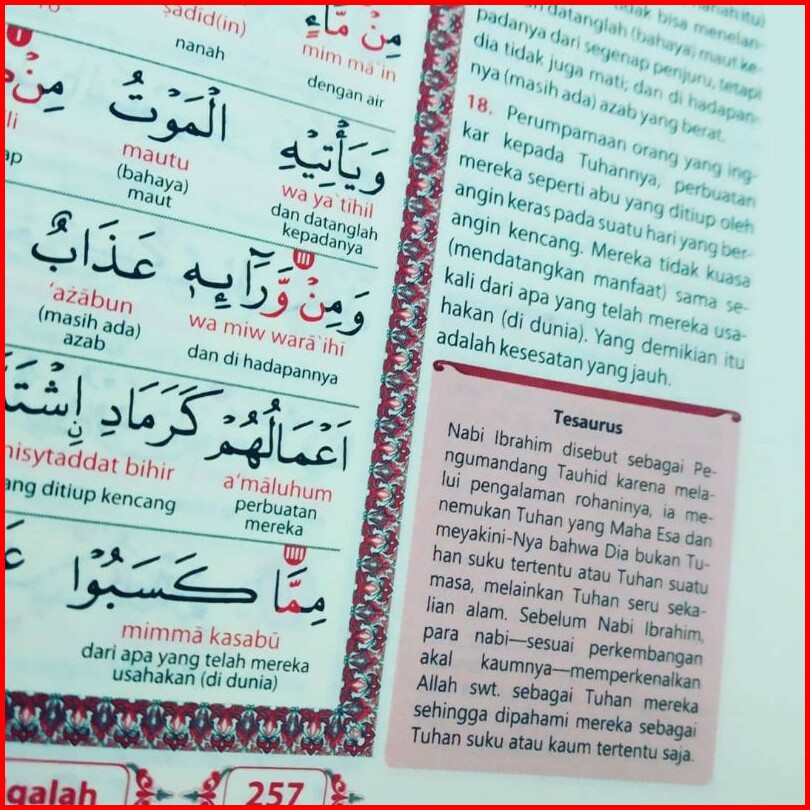 ṣadīd(in)
nanah
مِنْ مَّاۤءٍ
mim mā`in
dengan air
الْمَوْتُ
mautu
(bahaya)
maut
وَيَأْتِيْهِ
wa ya`tīhil
dan datanglah
kepadanya
عَذَابٌ
‘ażābun
(masih ada)
azab
وَمِنْ وَّرَاۤىِٕهٖ
wa miw warā`ihī
dan di hadapannya
كَرَمَادِ ِۨاشْتَ
misytaddat bihir
ang ditiup kencang
اَعْمَالُهُمْ
a‘māluhum
perbuatan
mereka
مِمَّا كَسَبُوْا
mimmā kasabū
dari apa yang telah mereka
usahakan (di dunia)
257
dak bisa menelan-
datanglah (bahaya) maut ke-
padanya dari segenap penjuru, tetapi
dia tidak juga mati; dan di hadapan-
nya (masih ada) azab yang berat.
18. Perumpamaan orang yang ing-
kar kepada Tuhannya, perbuatan
mereka seperti abu yang ditiup oleh
angin keras pada suatu hari yang ber-
angin kencang. Mereka tidak kuasa
(mendatangkan manfaat) sama se-
kali dari apa yang telah mereka usa-
hakan (di dunia). Yang demikian itu
adalah kesesatan yang jauh.
Tesaurus
Nabi Ibrahim disebut sebagai Pe-
ngumandang Tauhid karena mela-
lui pengalaman rohaninya, ia me-
nemukan Tuhan yang Maha Esa dan
meyakini-Nya bahwa Dia bukan Tu-
han suku tertentu atau Tuhan suatu
masa, melainkan Tuhan seru seka-
lian alam. Sebelum Nabi Ibrahim,
para nabi—sesuai perkembangan
akal kaumnya—memperkenalkan
Allah swt. sebagai Tuhan mereka
sehingga dipahami mereka sebagai
Tuhan suku atau kaum tertentu saja.